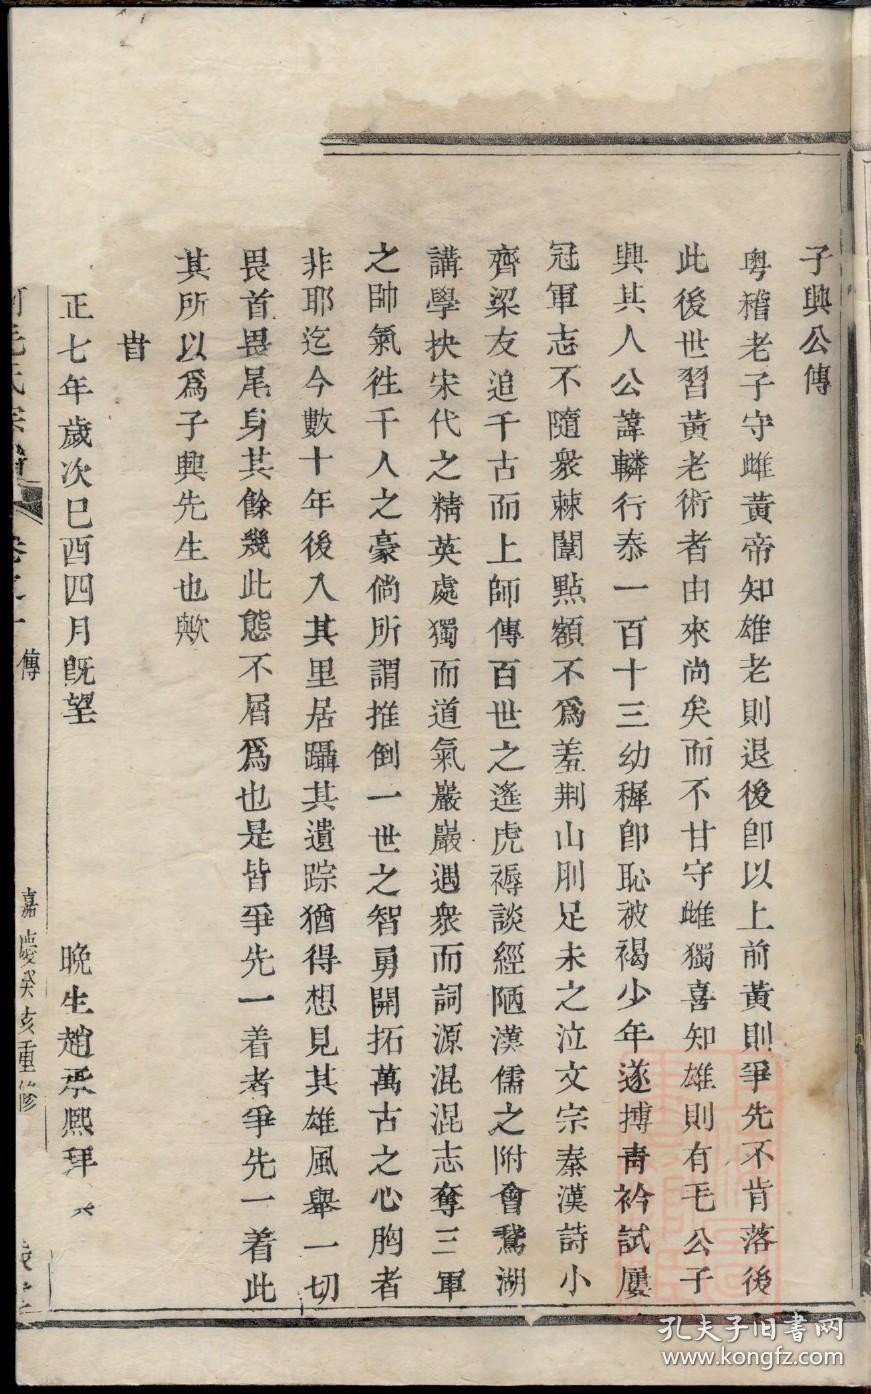 子興公傳
粤稽老子守雌黃帝知雄老則退後卽以上前黃則爭先不肯落後
此後世習黃老術者由來尚矣而不甘守雌獨喜知雄則有毛公子
興其人公諱轔行泰一百十三幼穉卽恥被褐少年遂搏青衿試屢
冠軍志不隨衆棘闈點額不爲羞荆山刖足未之泣文宗秦漢詩小
齊梁友追千古而上師傳百世之遙虎褥談經陋漢儒之附會鵞湖
講學抉宋代之精英處獨而道氣巖巖遇衆而詞源混混志奪三軍
之帥氣徃千人之豪倘所謂推倒一世之智勇開拓萬古之心胸者
非耶迄今數十年後入其里居躡其遺踪猶得想見其雄風舉一切
畏首畏尾身其餘幾此態不屑爲也是皆爭先一着者爭先一着此
其所以爲子興先生也歟
旹
正七年歲次巳酉四月既望
晚生趙承熈拜
毛氏宗譜
卷之 傳
嘉慶癸亥重修
孔夫子旧书网
www.kongfz.com